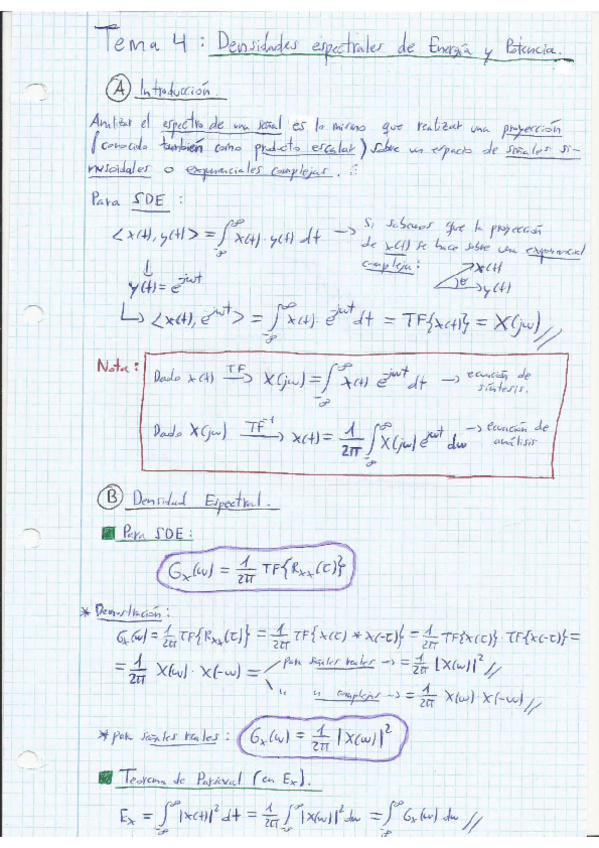 Tema 4 : Densidades espectrales de Energía y Potencia.
Ⓐ Introducción.
Analizar el espectro de una señal es lo mismo que realizar una proyección
(conocido también como producto escalar) sobre un espacio de señales si-
nusoidales o exponenciales complejas.
Para SDE :
<x(t), y(t)> = ∫_{-∞}^{∞} x(t)·y(t) dt → Si sabemos que la proyección
de x(t) se hace sobre una exponencial
compleja:
x(t)
θ
y(t)
↓
y(t) = e^{-jωt}
↳ <x(t), e^{-jωt}> = ∫_{-∞}^{∞} x(t)· e^{-jωt} dt = TF{x(t)} = X(jω) //
Nota :
Dado x(t) —TF→ X(jω) = ∫_{-∞}^{∞} x(t) e^{-jωt} dt → ecuación de
síntesis.
Dado X(jω) —TF⁻¹→ x(t) = 1/2π ∫_{-∞}^{∞} X(jω) e^{jωt} dω → ecuación de
análisis
Ⓑ Densidad Espectral.
Para SDE :
Gx(ω) = 1/2π TF{Rxx(τ)}
* Demostración :
Gx(ω) = 1/2π TF{Rxx(τ)} = 1/2π TF{x(τ) * x(-τ)} = 1/2π TF{x(τ)} · TF{x(-τ)} =
= 1/2π X(ω) · X(-ω) = para señales reales → = 1/2π |X(ω)|² //
" " complejas → = 1/2π X(ω) · X(-ω) //
* para señales reales : Gx(ω) = 1/2π |X(ω)|²
Teorema de Parseval (en Ex).
Ex = ∫_{-∞}^{∞} |x(t)|² dt = 1/2π ∫_{-∞}^{∞} |X(ω)|² dω = ∫_{-∞}^{∞} Gx(ω) dω //